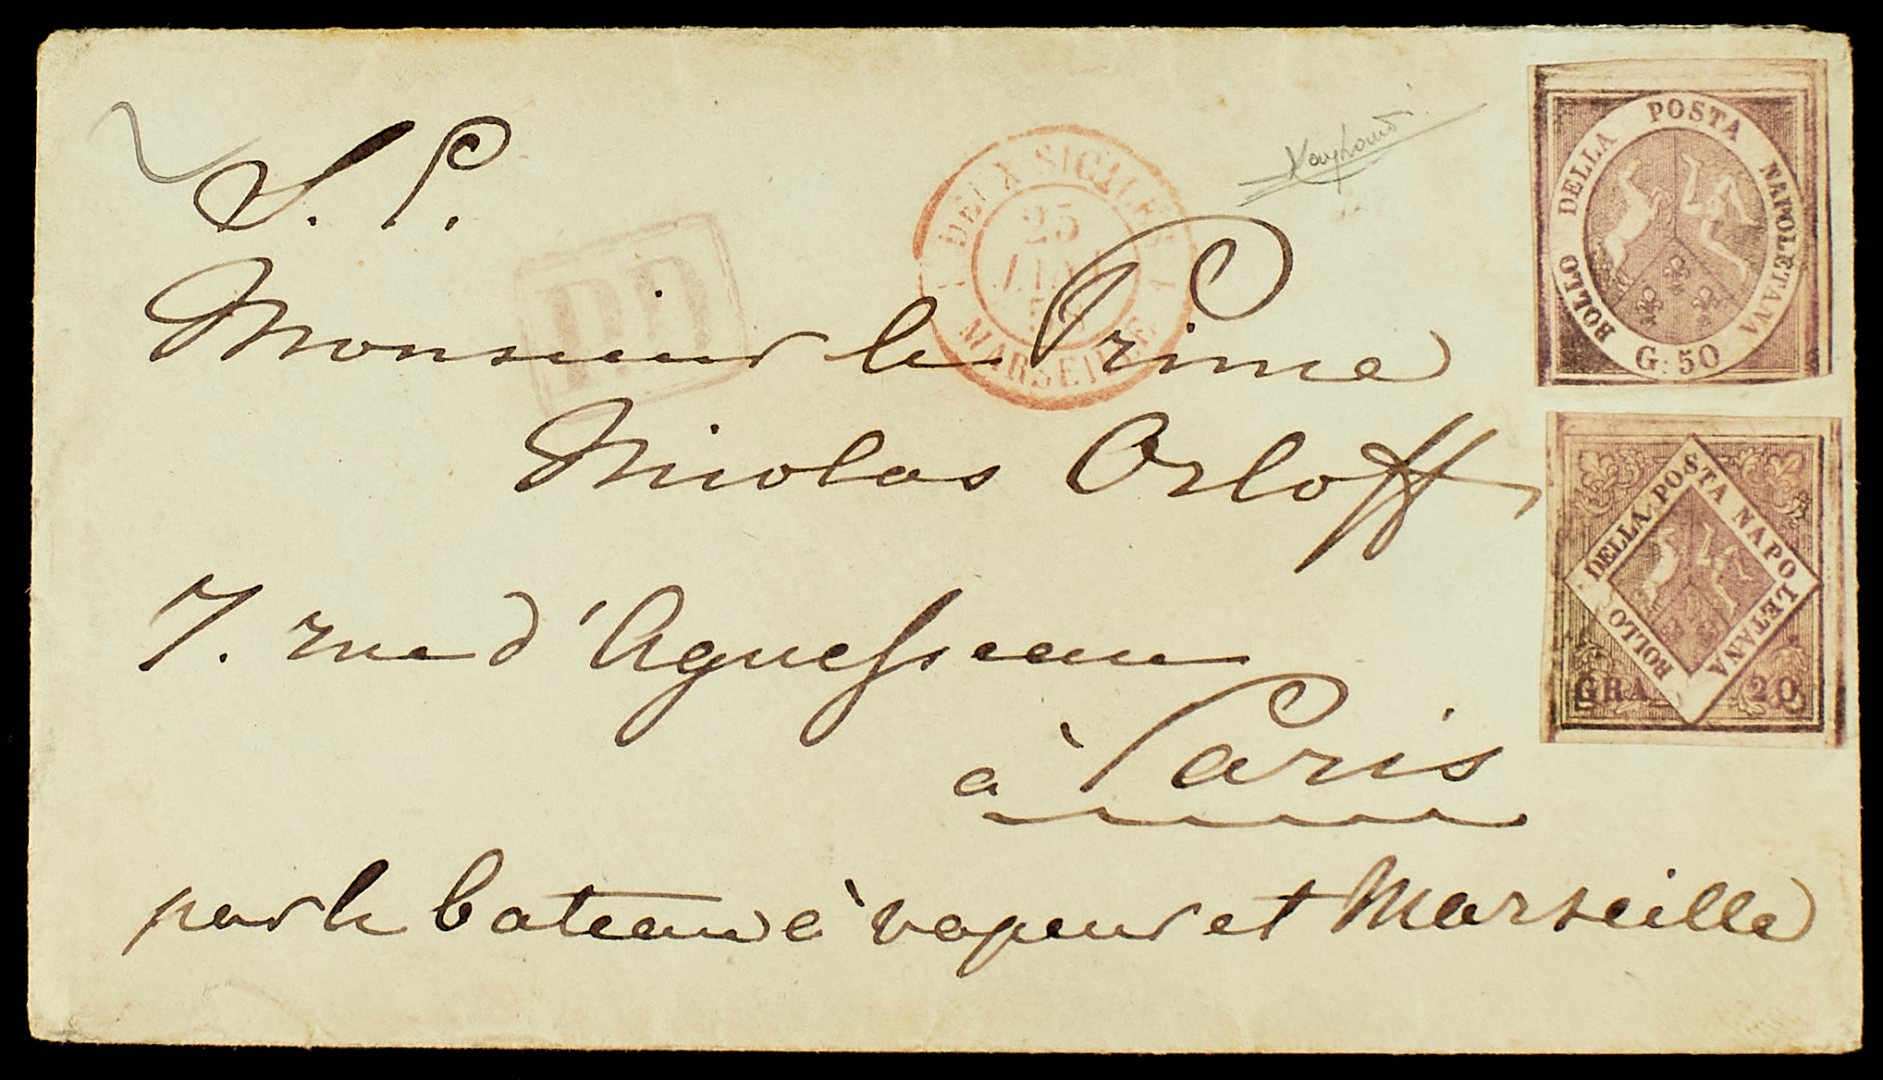 S. P.
Monsieur le Prince
Nicolas Orloff
7. rue d'Aguesseau
à Paris
par le bateau à vapeur et Marseille
P.D.
DEUX SICILES
25
58
MARSEILLE
BOLLO DELLA POSTA NAPOLETANA
G. 50
BOLLO DELLA POSTA NAPOLETANA
GRA 20